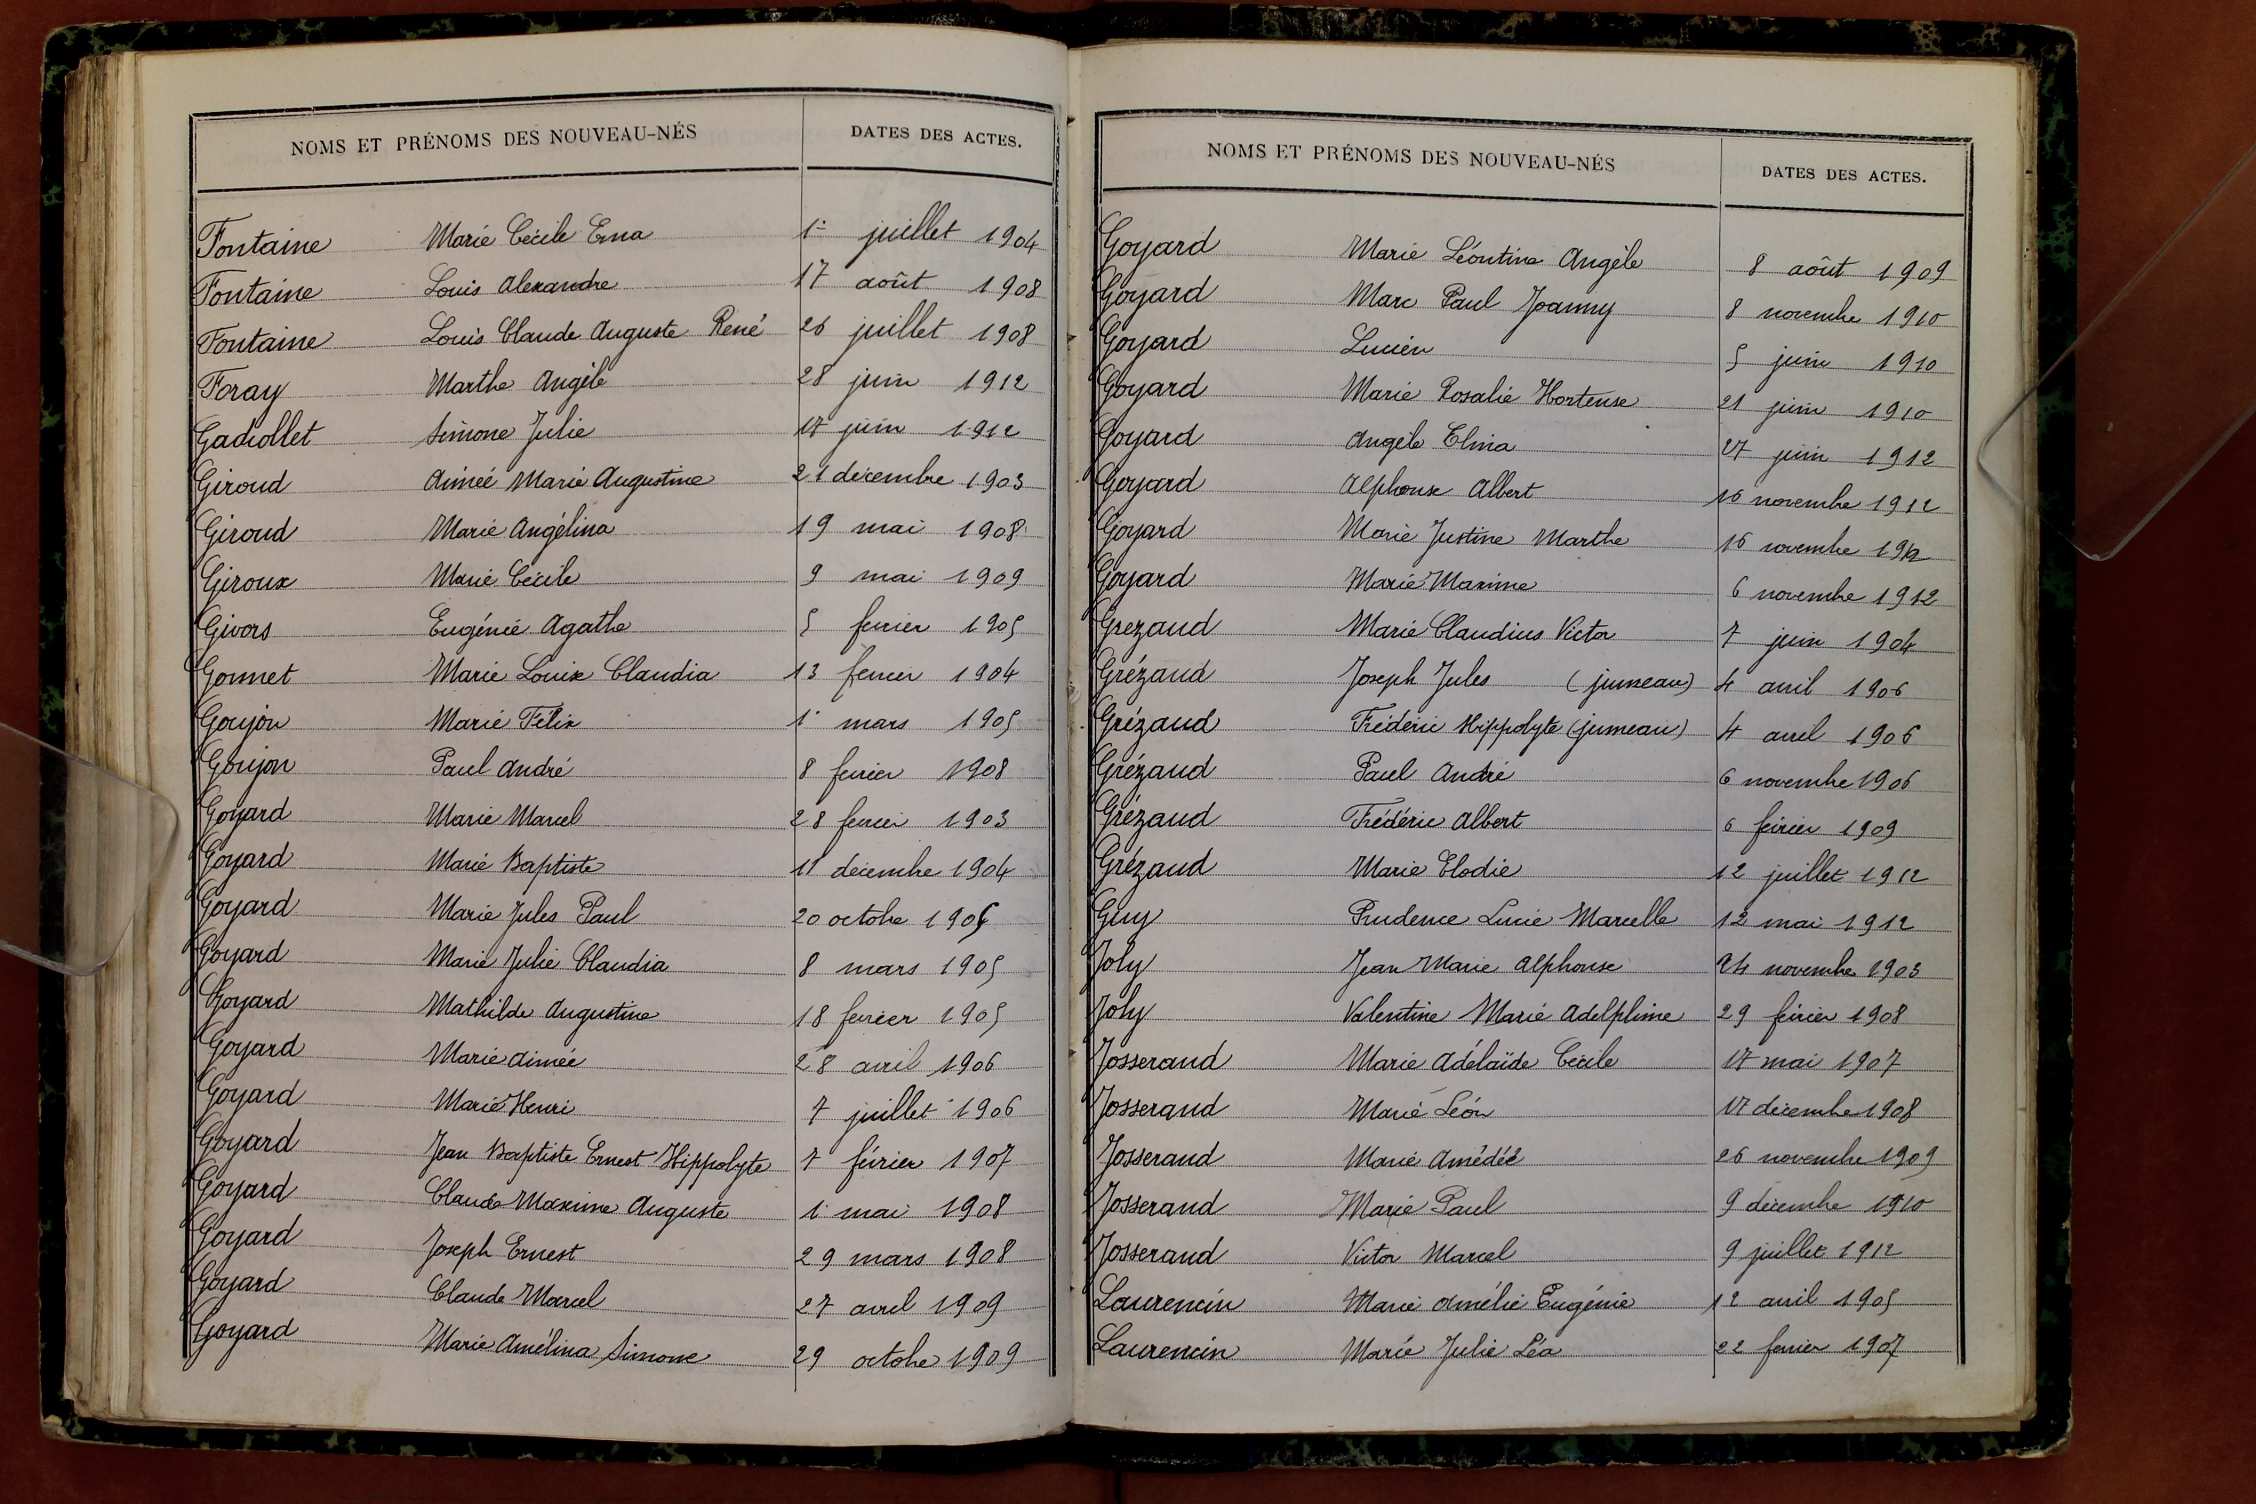 NOMS ET PRÉNOMS DES NOUVEAU-NÉS DATES DES ACTES.
Fontaine Marie Cécile Erna 1er juillet 1904
Fontaine Louis Alexandre 17 août 1908
Fontaine Louis Claude Auguste René 26 juillet 1908
Foray Marthe Angèle 28 juin 1912
Gadiollet Simone Julie 17 juin 1912
Giroud Aimée Marie Augustine 21 décembre 1903
Giroud Marie Angélina 19 mai 1908
Giroux Marie Cécile 9 mai 1909
Givors Eugénie Agathe 5 février 1905
Gonnet Marie Louise Claudia 13 février 1904
Goujon Marie Félix 1er mars 1905
Goujon Paul André 8 février 1908
Goyard Marie Marcel 28 février 1903
Goyard Marie Baptiste 11 décembre 1904
Goyard Marie Jules Paul 20 octobre 1905
Goyard Marie Julie Claudia 8 mars 1905
Goyard Mathilde Augustine 18 février 1905
Goyard Marie Aimée 28 avril 1906
Goyard Marie Henri 7 juillet 1906
Goyard Jean Baptiste Ernest Hippolyte 7 février 1907
Goyard Claude Maxime Auguste 1er mai 1908
Goyard Joseph Ernest 29 mars 1908
Goyard Claude Marcel 27 avril 1909
Goyard Marie Amélina Simone 29 octobre 1909
NOMS ET PRÉNOMS DES NOUVEAU-NÉS DATES DES ACTES.
Goyard Marie Léontine Angèle 8 août 1909
Goyard Marc Paul Joanny 8 novembre 1910
Goyard Lucien 5 juin 1910
Goyard Marie Rosalie Hortense 21 juin 1910
Goyard Angèle Elina 27 juin 1912
Goyard Alphonse Albert 16 novembre 1912
Goyard Marie Justine Marthe 16 novembre 1912
Goyard Marie Maxime 6 novembre 1912
Grezaud Marie Claudius Victor 7 juin 1904
Grézaud Joseph Jules (jumeau) 4 avril 1906
Grézaud Frédéric Hippolyte (jumeau) 4 avril 1906
Grézaud Paul André 6 novembre 1906
Grézaud Frédéric Albert 6 février 1909
Grézaud Marie Elodie 12 juillet 1912
Guy Prudence Lucie Marcelle 12 mai 1912
Joly Jean Marie Alphonse 24 novembre 1903
Joly Valentine Marie Adelphine 29 février 1908
Josserand Marie Adélaïde Cécile 17 mai 1907
Josserand Marie Léon 17 décembre 1908
Josserand Marie Amédée 26 novembre 1909
Josserand Marie Paul 9 décembre 1910
Josserand Victor Marcel 9 juillet 1912
Laurencin Marie Amélie Eugénie 12 avril 1905
Laurencin Marie Julie Léa 22 février 1907